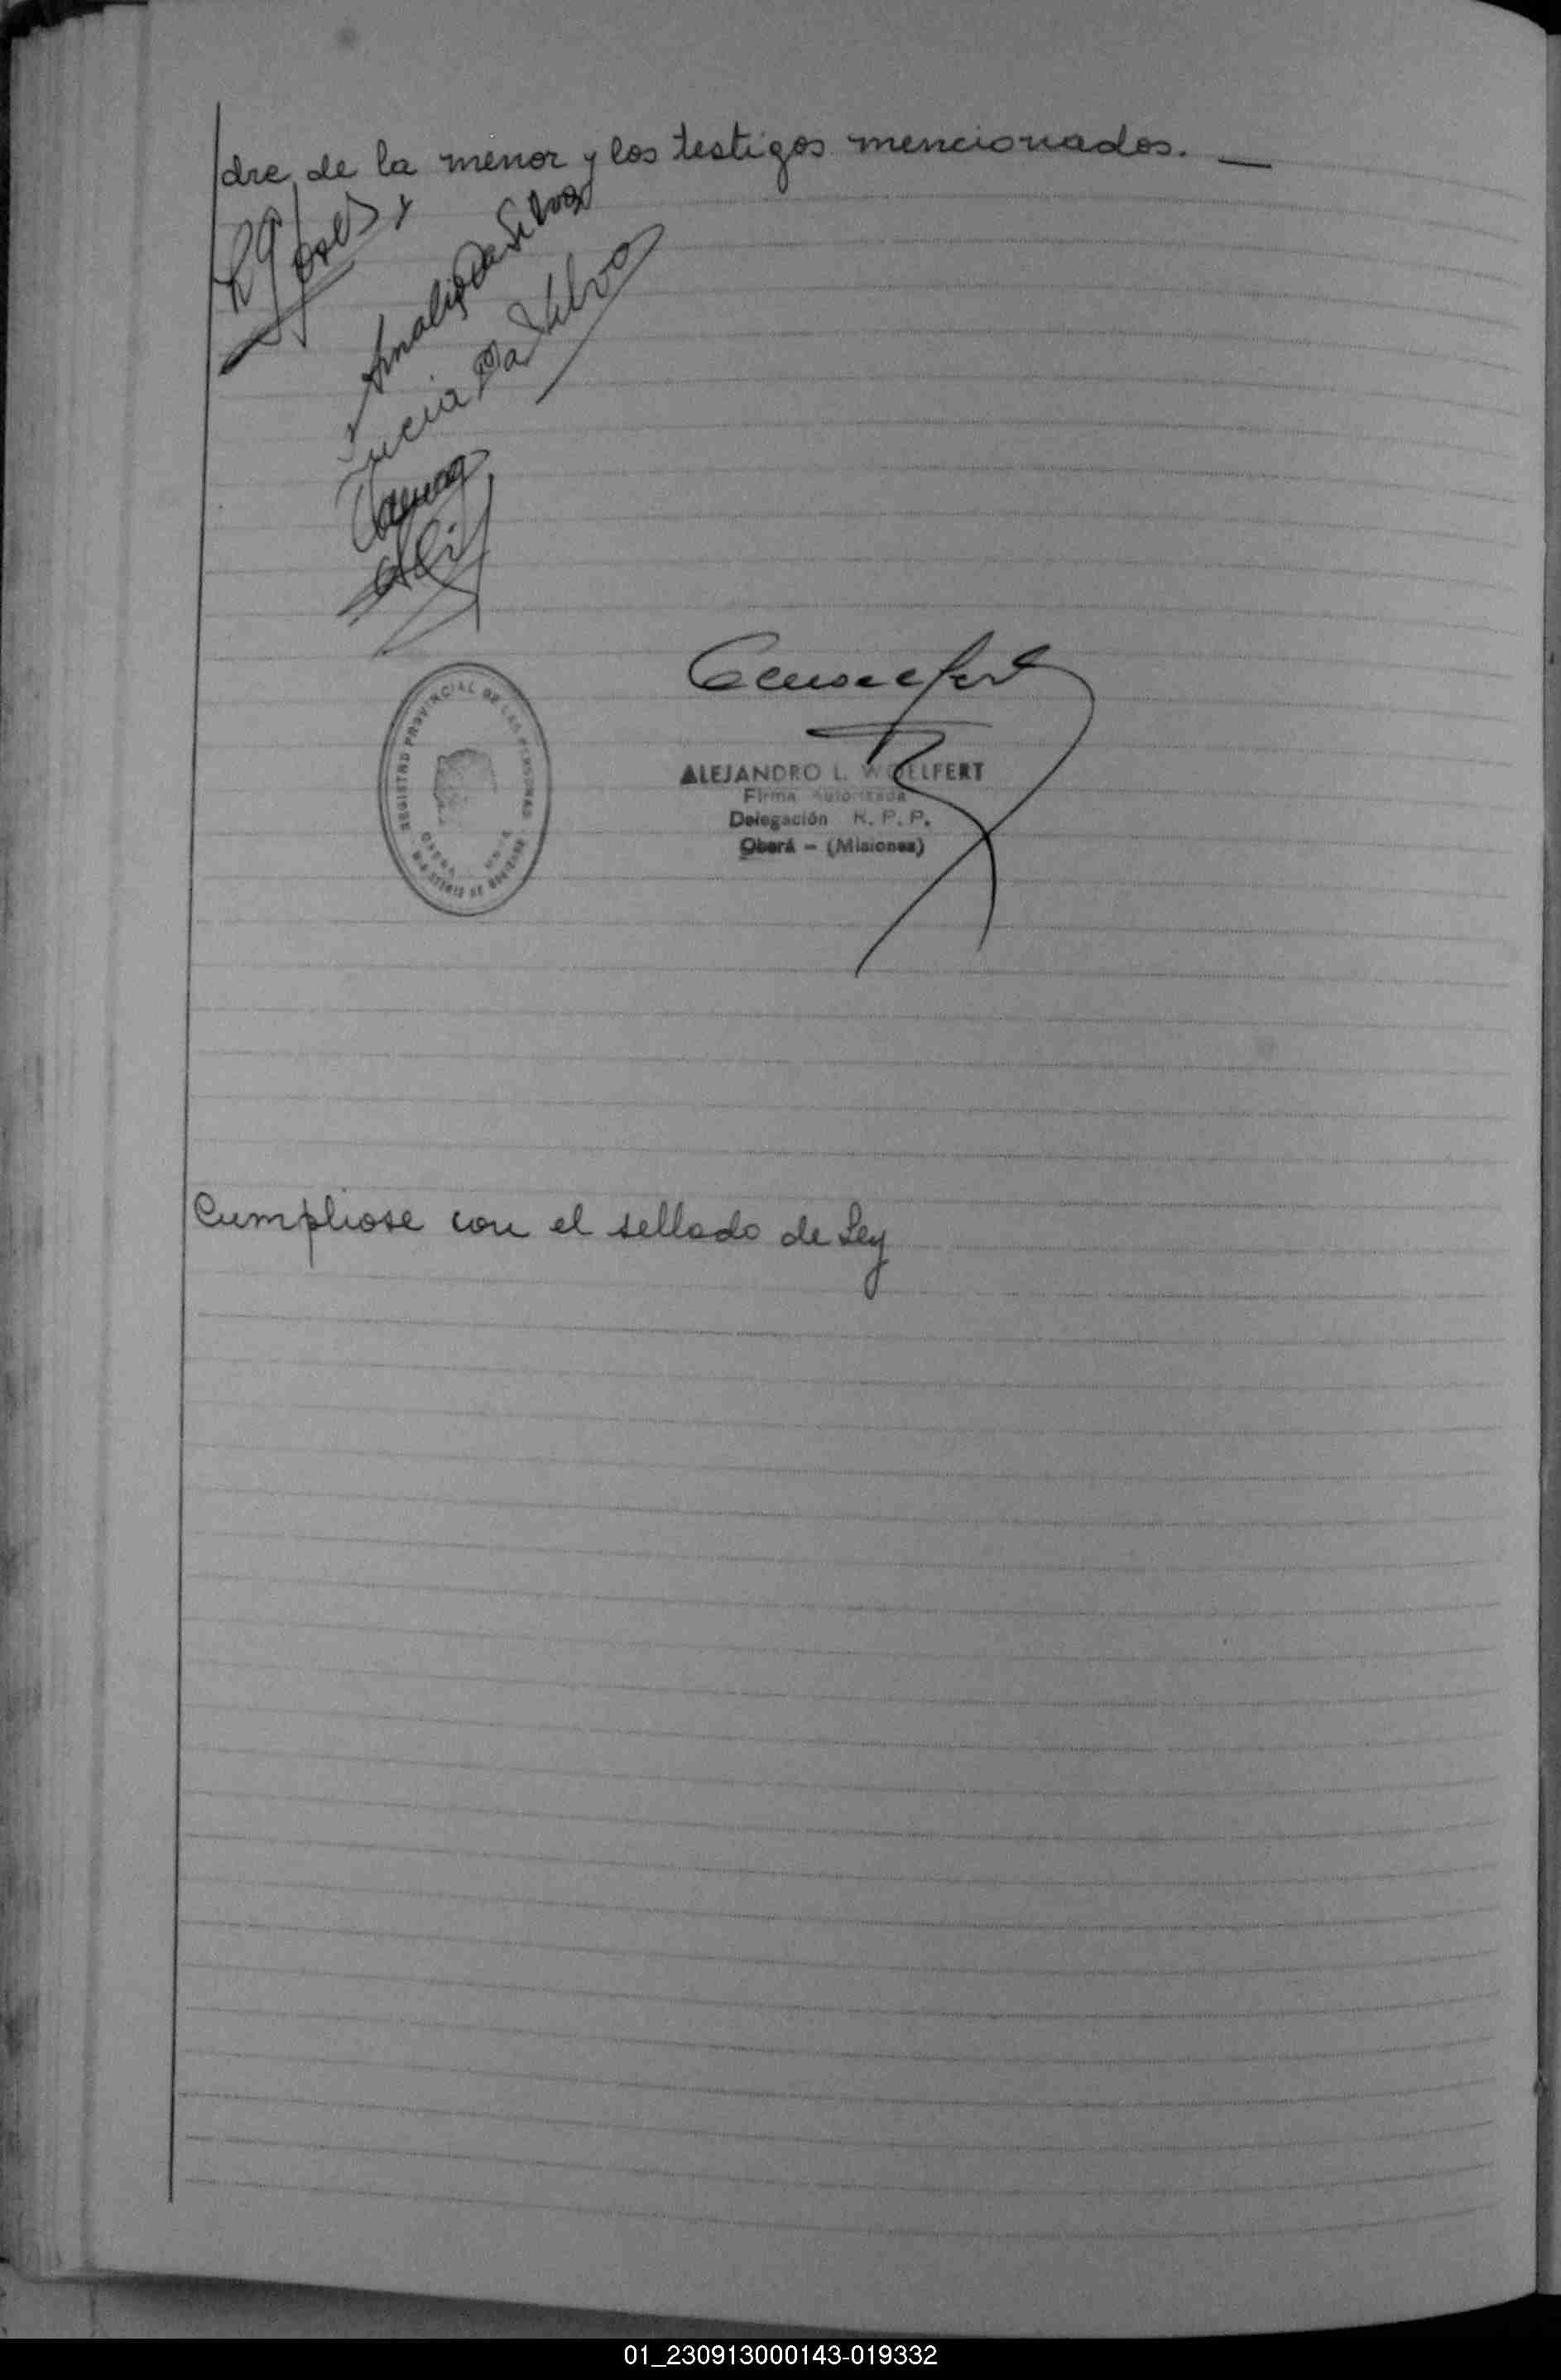 dre, de la menor y los testigos mencionados. —
Amalia Da Silva
Lucia Da Silva
REGISTRO PROVINCIAL DE LAS PERSONAS
ALEJANDRO L. WOELFERT
Firma Autorizada
Delegación R. P. P.
Oberá - (Misiones)
Cumpliose con el sellado de Ley
01_230913000143-019332